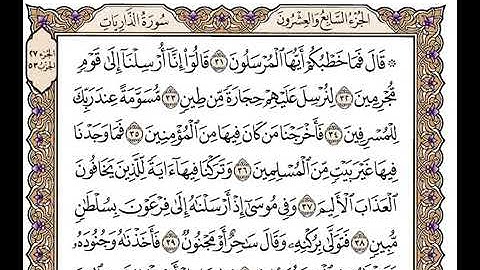 الجزء السابع والعشرون
سورة الذاريات
الجزء ٢٧
الحزب ٥٣
۞ قَالَ فَمَا خَطْبُكُمْ أَيُّهَا ٱلْمُرْسَلُونَ ٣١ قَالُوٓا۟ إِنَّآ أُرْسِلْنَآ إِلَىٰ قَوْمٍ
مُّجْرِمِينَ ٣٢ لِنُرْسِلَ عَلَيْهِمْ حِجَارَةً مِّن طِينٍ ٣٣ مُّسَوَّمَةً عِندَ رَبِّكَ
لِلْمُسْرِفِينَ ٣٤ فَأَخْرَجْنَا مَن كَانَ فِيهَا مِنَ ٱلْمُؤْمِنِينَ ٣٥ فَمَا وَجَدْنَا
فِيهَا غَيْرَ بَيْتٍ مِّنَ ٱلْمُسْلِمِينَ ٣٦ وَتَرَكْنَا فِيهَآ ءَايَةً لِّلَّذِينَ يَخَافُونَ
ٱلْعَذَابَ ٱلْأَلِيمَ ٣٧ وَفِى مُوسَىٰٓ إِذْ أَرْسَلْنَٰهُ إِلَىٰ فِرْعَوْنَ بِسُلْطَٰنٍ
مُّبِينٍ ٣٨ فَتَوَلَّىٰ بِرُكْنِهِۦ وَقَالَ سَٰحِرٌ أَوْ مَجْنُونٌ ٣٩ فَأَخَذْنَٰهُ وَجُنُودَهُۥ